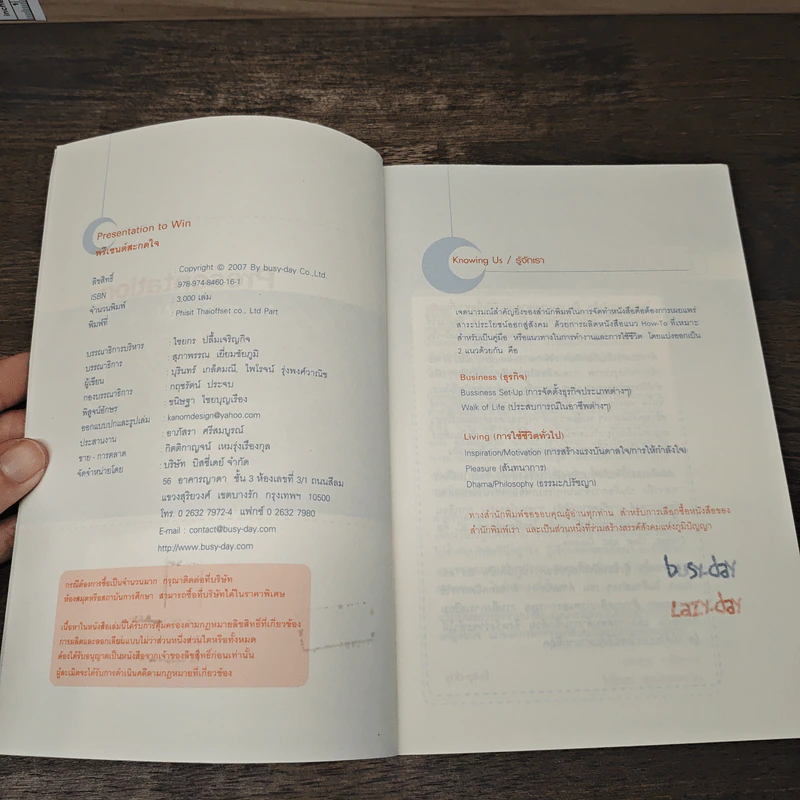 Presentation to Win
พรีเซนต์สะกดใจ
ลิขสิทธิ์ Copyright © 2007 By busy-day Co.,Ltd.
ISBN 978-974-8460-16-1
จำนวนพิมพ์ 3,000 เล่ม
พิมพ์ที่ : Phisit Thaioffset co., Ltd Part
บรรณาธิการบริหาร : ไชยกร ปลื้มเจริญกิจ
บรรณาธิการ : สุภาพรรณ เยี่ยมชัยภูมิ
ผู้เขียน : บุรินทร์ เกล็ดมณี, ไพโรจน์ รุ่งพงศ์วาณิช
กองบรรณาธิการ : กฤชรัตน์ ประจบ
พิสูจน์อักษร : ชนิษฐา ไชยบุญเรือง
ออกแบบปกและรูปเล่ม : kanomdesign@yahoo.com
ประสานงาน : อาภัสรา ศรีสมบูรณ์
ขาย - การตลาด : กิตติกาญจน์ เหมรุ่งเรืองกุล
จัดจำหน่ายโดย : บริษัท บิสซี่เดย์ จำกัด
56 อาคารญาดา ชั้น 3 ห้องเลขที่ 3/1 ถนนสีลม
แขวงสุริยวงศ์ เขตบางรัก กรุงเทพฯ 10500
โทร. 0 2632 7972-4 แฟกซ์ 0 2632 7980
E-mail : contact@busy-day.com
http://www.busy-day.com
กรณีต้องการซื้อเป็นจำนวนมาก กรุณาติดต่อที่บริษัท
ห้องสมุดหรือสถาบันการศึกษา สามารถซื้อที่บริษัทได้ในราคาพิเศษ
เนื้อหาในหนังสือเล่มนี้ได้รับการคุ้มครองตามกฎหมายลิขสิทธิ์ที่เกี่ยวข้อง
การผลิตและลอกเลียนแบบไม่ว่าส่วนหนึ่งส่วนใดหรือทั้งหมด
ต้องได้รับอนุญาตเป็นหนังสือจากเจ้าของลิขสิทธิ์ก่อนเท่านั้น
ผู้ละเมิดจะได้รับการดำเนินคดีตามกฎหมายที่เกี่ยวข้อง
Knowing Us / รู้จักเรา
เจตนารมณ์สำคัญยิ่งของสำนักพิมพ์ในการจัดทำหนังสือคือต้องการเผยแพร่
สาระประโยชน์ออกสู่สังคม ด้วยการผลิตหนังสือแนว How-To ที่เหมาะ
สำหรับเป็นคู่มือ หรือแนวทางในการทำงานและการใช้ชีวิต โดยแบ่งออกเป็น
2 แนวด้วยกัน คือ
Business (ธุรกิจ)
Bussiness Set-Up (การจัดตั้งธุรกิจประเภทต่างๆ)
Walk of Life (ประสบการณ์ในอาชีพต่างๆ)
Living (การใช้ชีวิตทั่วไป)
Inspiration/Motivation (การสร้างแรงบันดาลใจ/การให้กำลังใจ)
Pleasure (สันทนาการ)
Dhama/Philosophy (ธรรมะ/ปรัชญา)
ทางสำนักพิมพ์ขอขอบคุณผู้อ่านทุกท่าน สำหรับการเลือกซื้อหนังสือของ
สำนักพิมพ์เรา และเป็นส่วนหนึ่งที่ร่วมสร้างสรรค์สังคมแห่งภูมิปัญญา
busy-day
LAZY-dAY